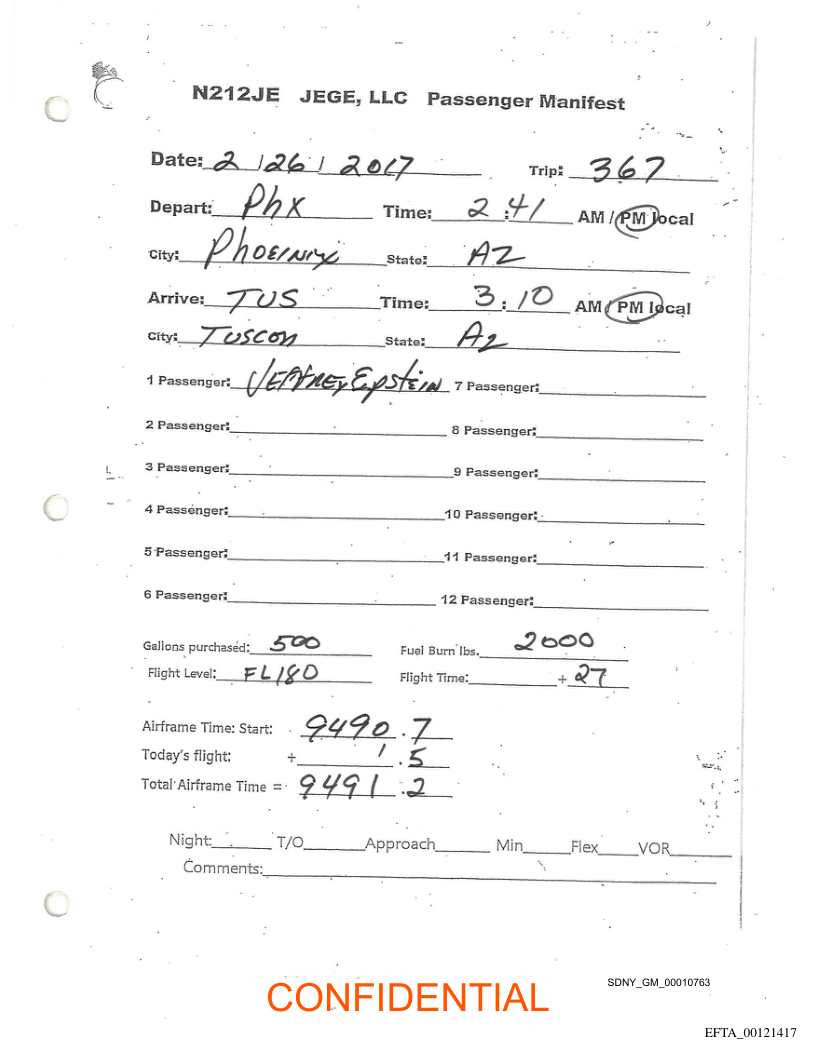 N212JE JEGE, LLC Passenger Manifest
Date: 2 / 26 / 2017 Trip: 367
Depart: Phx Time: 2:41 AM / PM local
City: Phoeinix State: AZ
Arrive: TUS Time: 3:10 AM / PM local
City: Tuscon State: Az
1 Passenger: Jeffrey Epstein 7 Passenger:
2 Passenger: 8 Passenger:
3 Passenger: 9 Passenger:
4 Passenger: 10 Passenger:
5 Passenger: 11 Passenger:
6 Passenger: 12 Passenger:
Gallons purchased: 500 Fuel Burn lbs. 2000
Flight Level: FL180 Flight Time: + 27
Airframe Time: Start: 9490.7
Today's flight: + .5
Total Airframe Time = 9491.2
Night: T/O Approach Min Flex VOR
Comments:
SDNY_GM_00010763
CONFIDENTIAL
EFTA_00121417